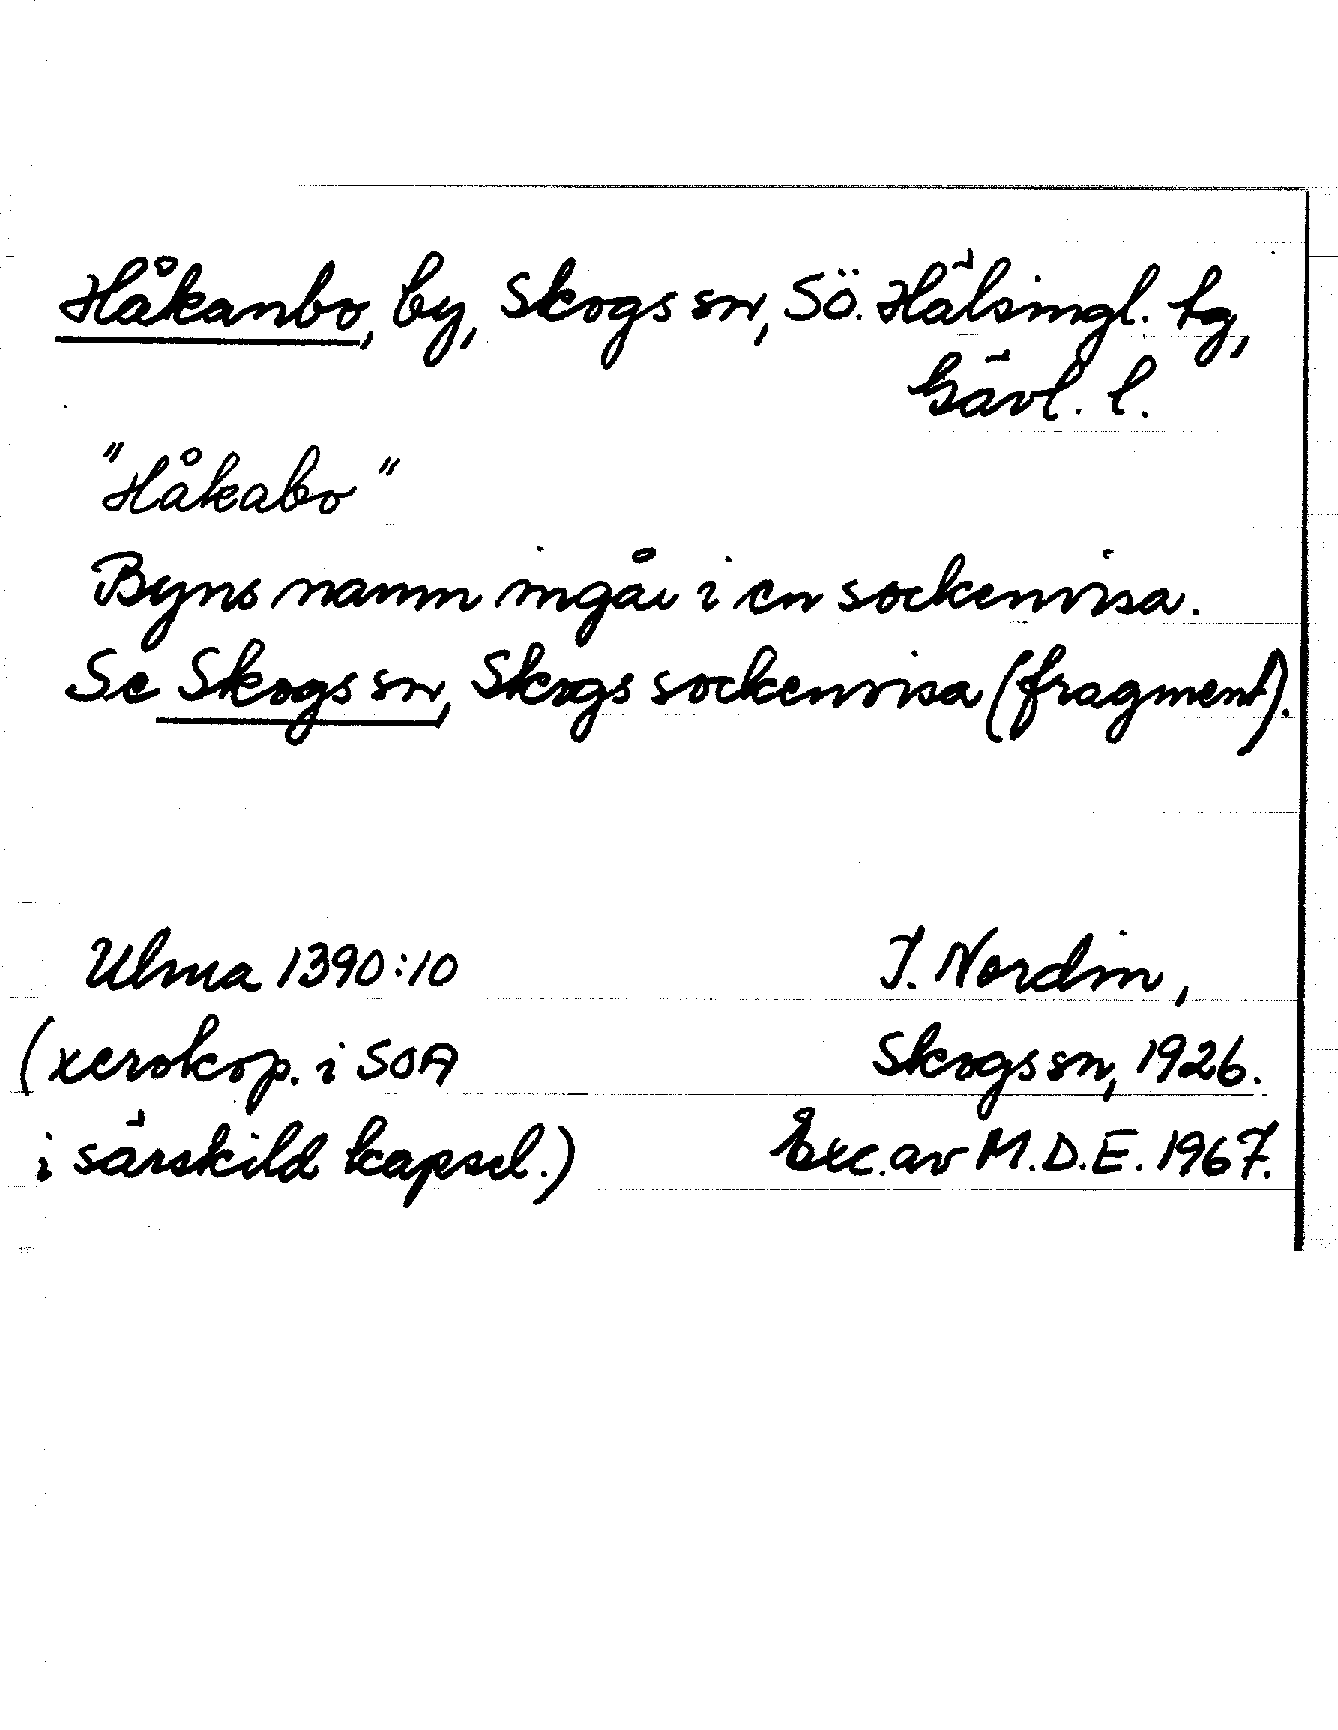 Håkanbo, by, Skogs sn, Sö. Hälsingl. tg,
Gävl. l.
"Håkabo"
Byns namn ingår i en sockenvisa.
Se Skogs sn, Skogs sockenvisa (fragment).
Ulma 1390:10
J. Nordin,
(xerokop. i SOA
Skogs sn, 1926.
i särskild kapsel.)
Exc. av M.D.E. 1967.